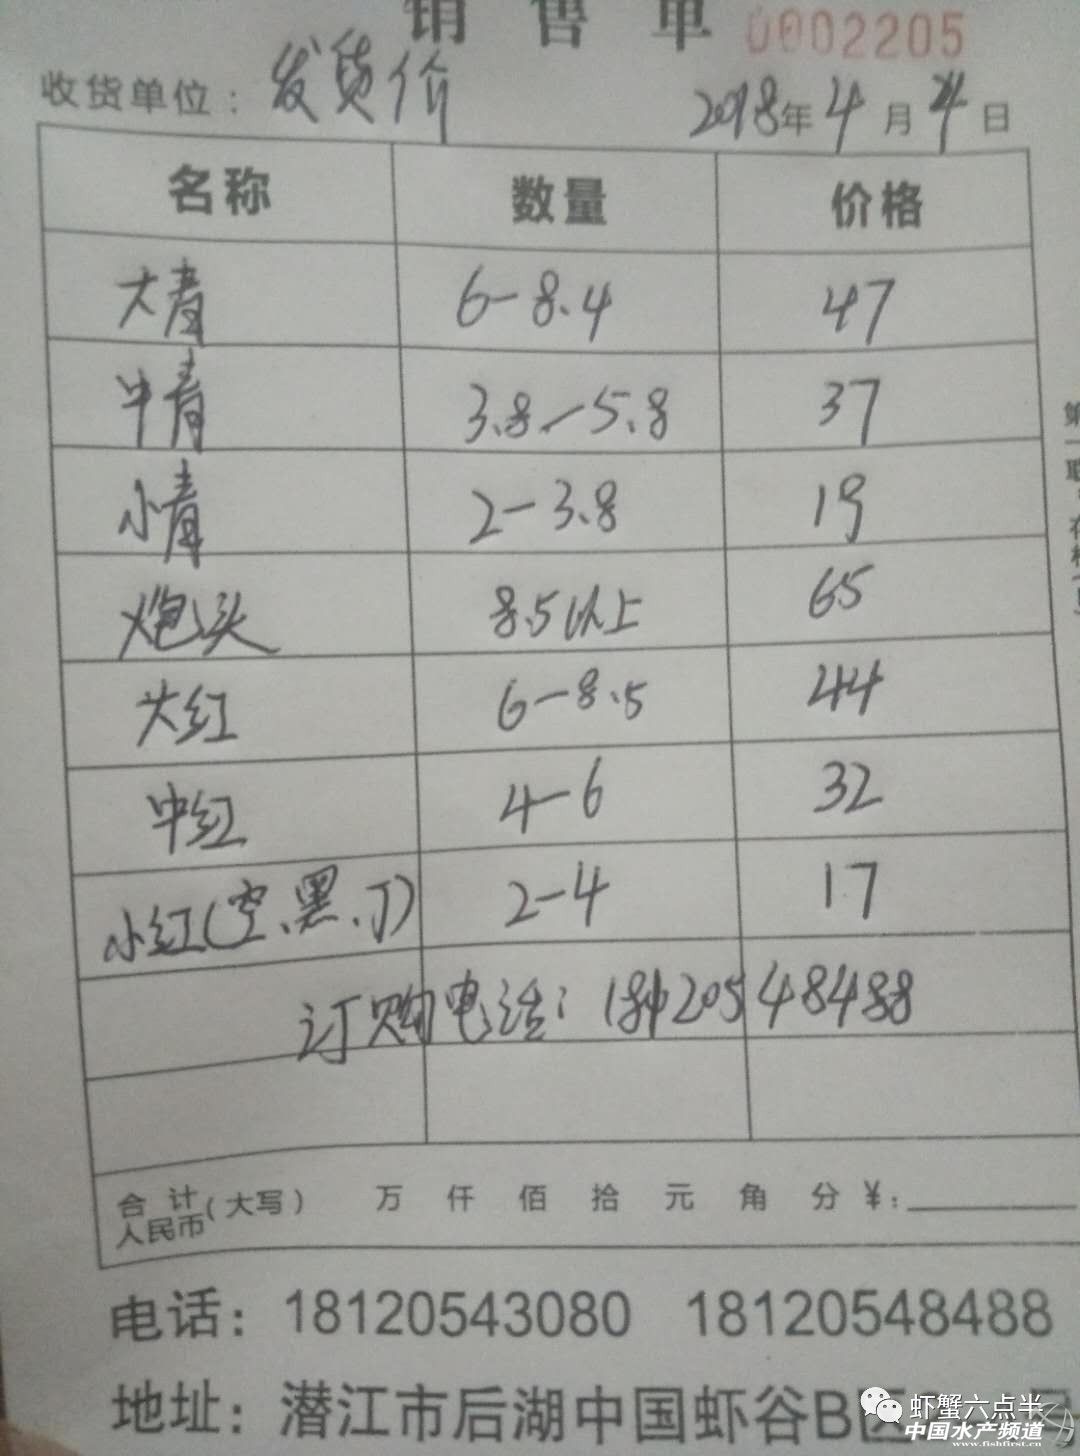 销售单 0002205
收货单位：发货价 2018年4月4日
名称 数量 价格
大青 6-8.4 47
中青 3.8-5.8 37
小青 2-3.8 19
炮头 8.5以上 65
大红 6-8.5 44
中红 4-6 32
小红(空、黑、丁) 2-4 17
订购电话：18120548488
合计人民币(大写) 万 仟 佰 拾 元 角 分 ¥：
电话：18120543080 18120548488
地址：潜江市后湖中国虾谷B区
虾蟹六点半
中国水产频道
www.fishfirst.cn